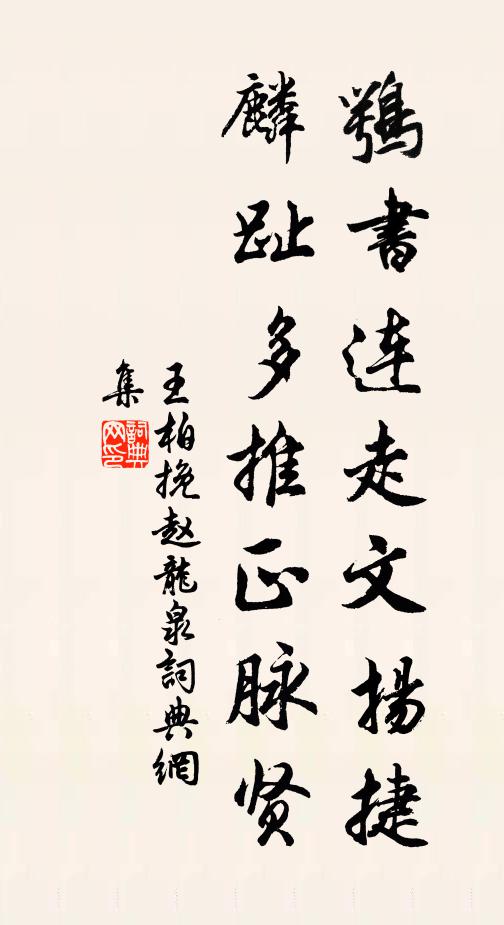 鶚書連走文揚捷
麟趾多推正脉贤
王柏挽赵龍泉詞典網
集
詞典网印